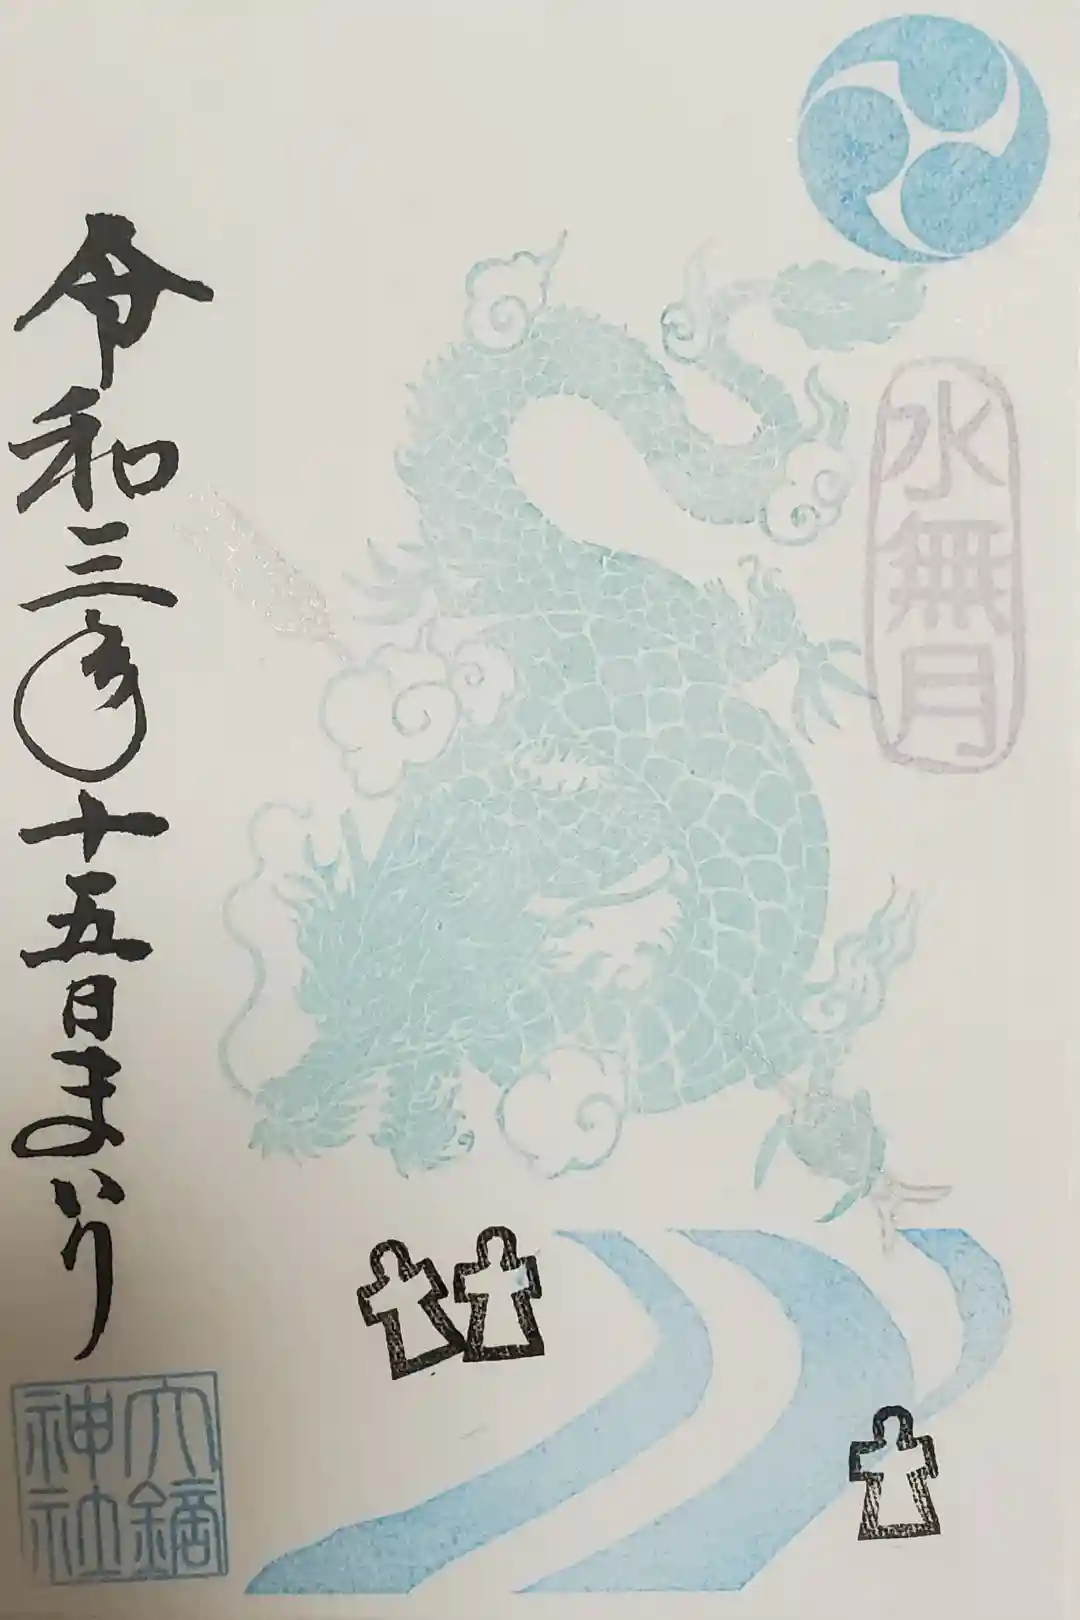 水無月
令和三年十五日まいり
六鏑
神社